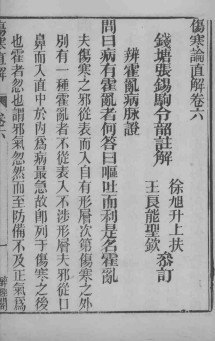 傷寒論直解卷六
錢塘張錫駒令韶註解
徐旭升上扶
王良能聖欽
叅訂
辨霍亂病脉證
問曰病有霍亂者何答曰嘔吐而利是名霍亂
夫傷寒之邪從表而入自有形層次第傷寒之外
別有一種霍亂者不從表入不涉形層夫邪從口
鼻而入直中於內爲病最急故卽列于傷寒之後
也霍者忽也謂邪氣忽然而至防備不及正氣爲
傷寒直解
卷六
一